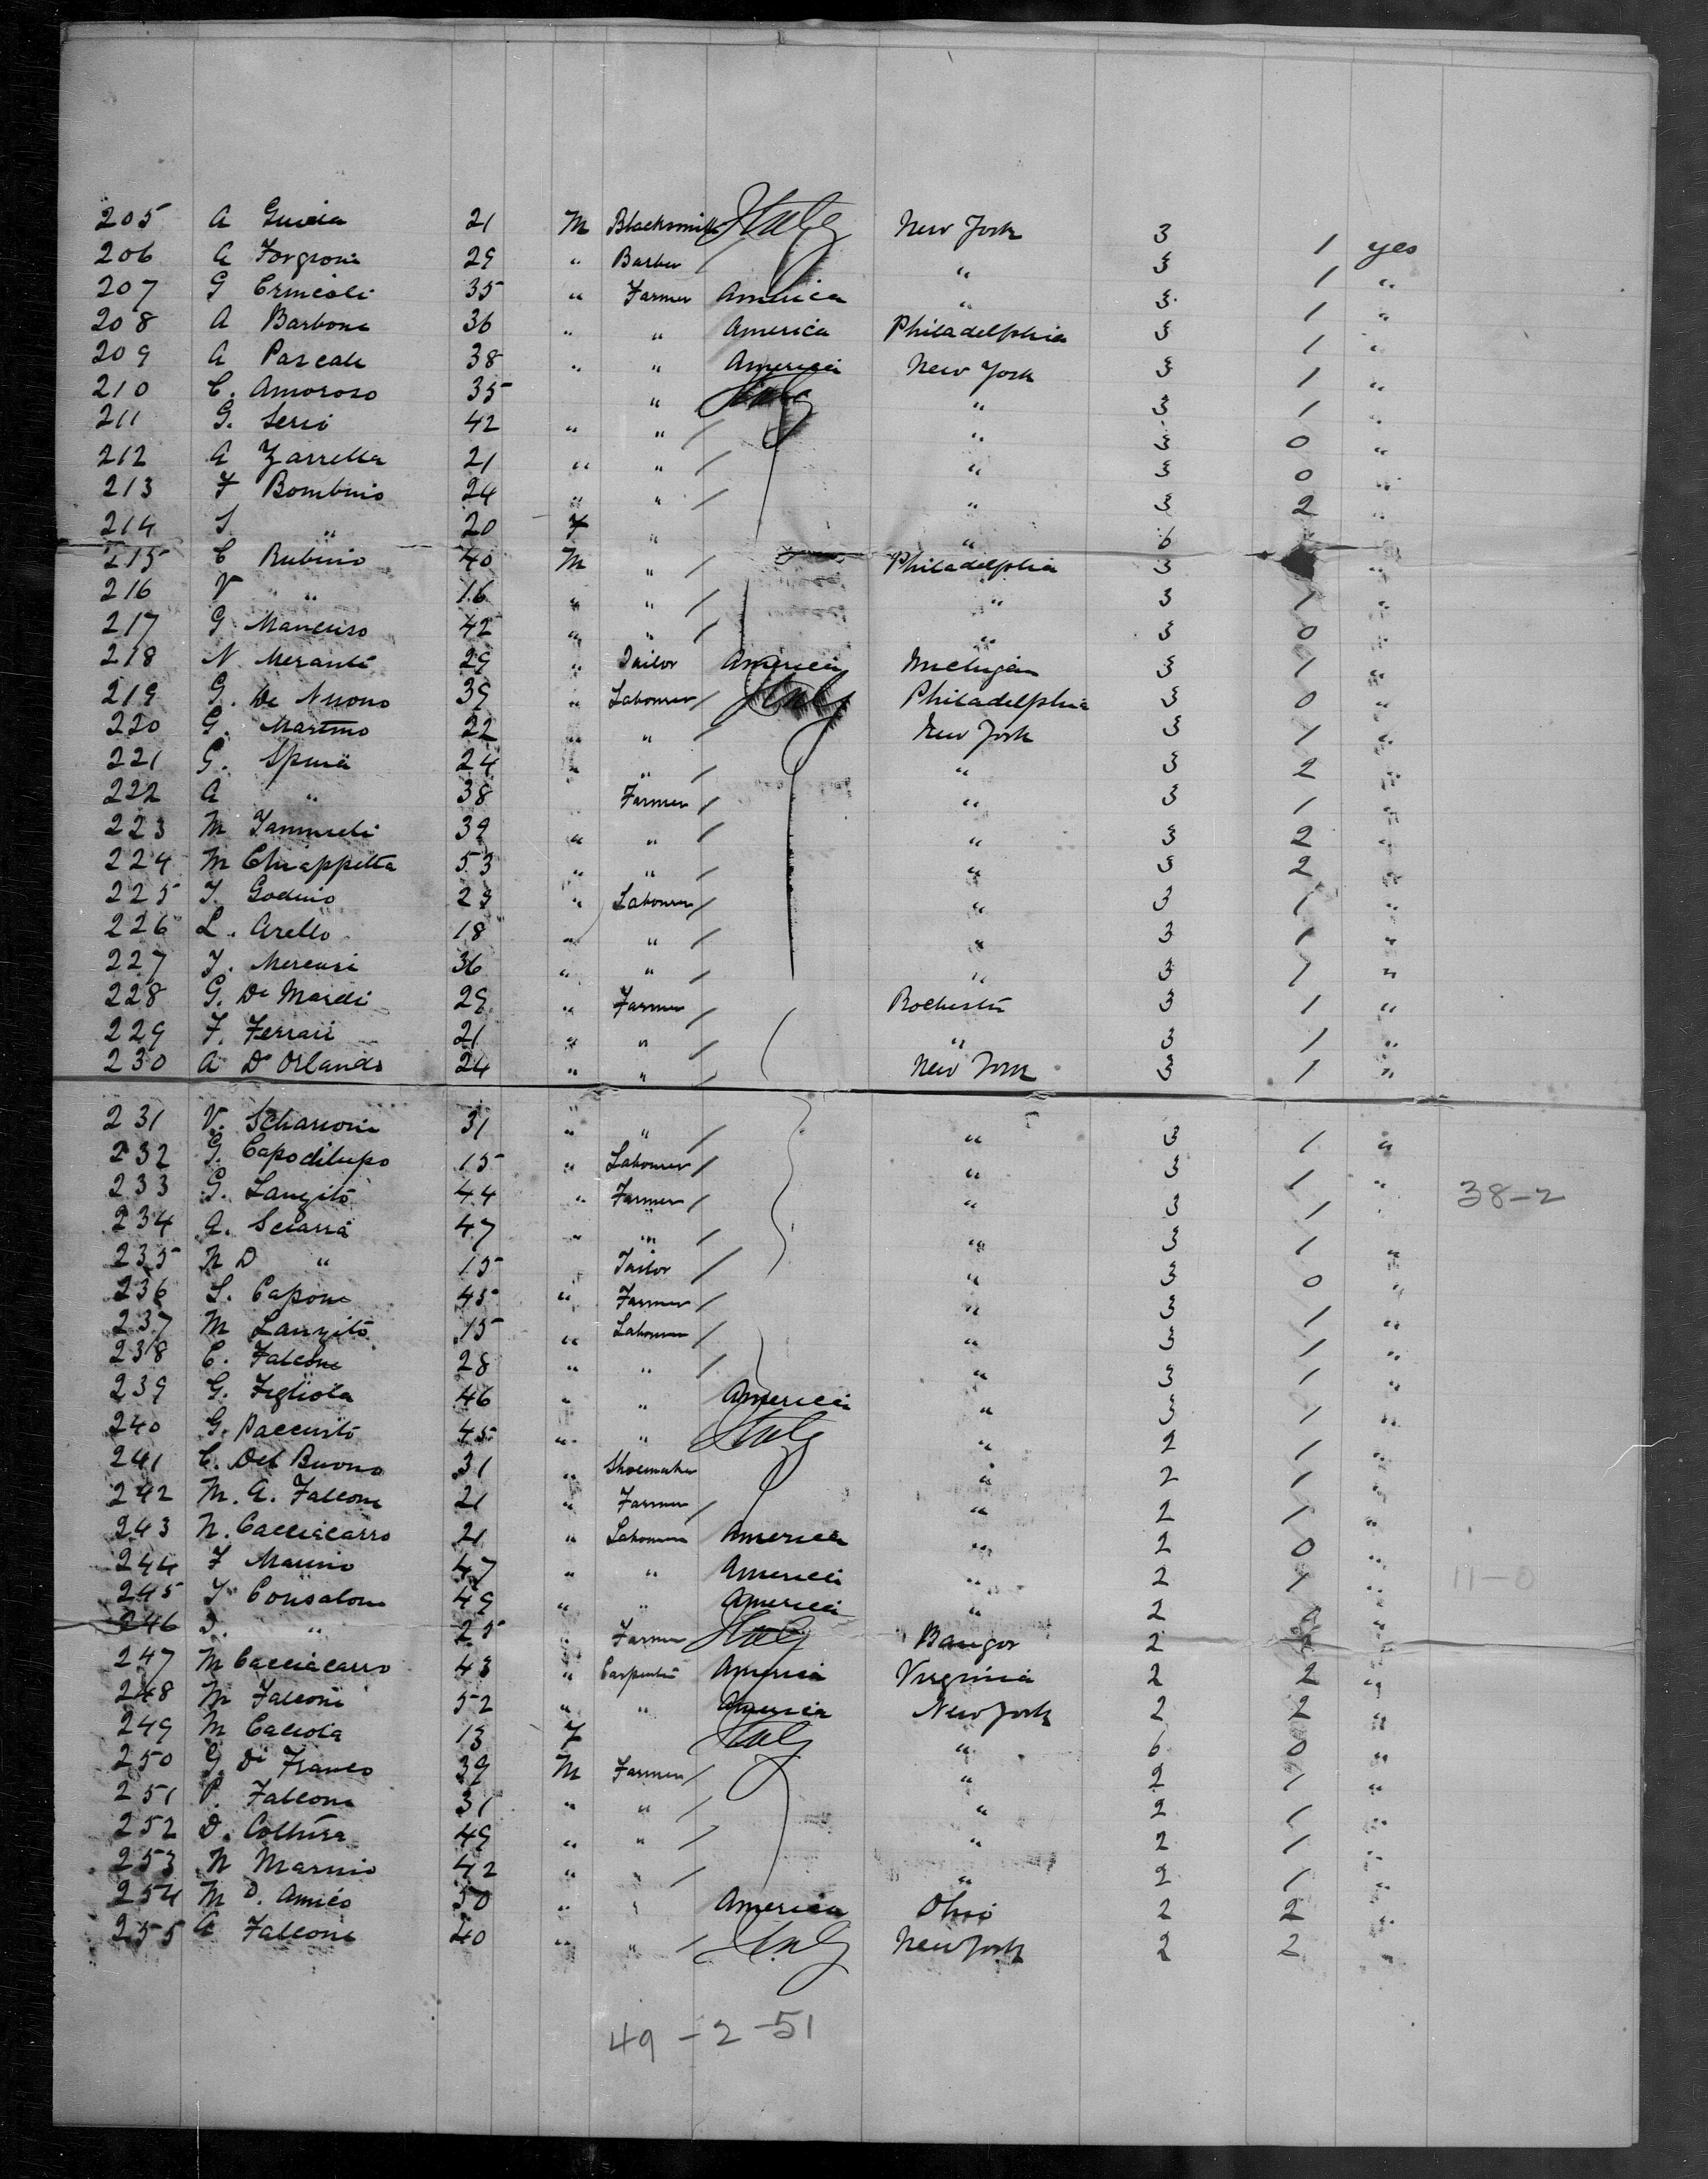 205 A 21 M Blacksmith Italy New York 3 1 yes
206 A Forgione 29 " Barber / " 3 1 "
207 G 35 " Farmer America " 3 1 "
208 A Barbone 36 " " America Philadelphia 3 1 "
209 A Pascale 38 " " America New York 3 1 "
210 C. Amoroso 35 " Italy " 3 1 "
211 G. Serio 42 " " / " 3 0 "
212 A Zarrella 21 " " / " 3 0 "
213 F Bombino 24 " " / " 3 2 "
214 S. " 20 F " " 6 "
215 C Rubino 40 M " / Philadelphia 3 "
216 V " 16 " " / " 3 1 "
217 G Mancuso 42 " " / " 3 0 "
218 N Meranti 29 " Tailor America Michigan 3 1 "
219 G. De Nuono 39 " Labourer / Italy Philadelphia 3 0 "
220 G. Martino 22 " " / New York 3 1 "
221 G. Spina 24 " " / " 3 2 "
222 A " 38 Farmer / " 3 1 "
223 M 39 " " / " 3 2 "
224 M Chiappetta 53 " " / " 3 2 "
225 F. Godino 23 " Labourer / " 3 1 "
226 L. Arello 18 " " / " 3 1 "
227 F. Mercuri 36 " " / " 3 1 "
228 G. De Mardi 29 " Farmer / Rochester 3 1 "
229 F. Ferrari 21 " " / " 3 1 "
230 A D'Orlando 24 " " / New York 3 1 "
231 V. 31 " " / " 3 1 "
232 G. Capodilupo 15 " Labourer / " 3 1 "
233 G. Lanzito 44 " Farmer / " 3 1 " 38-2
234 A. Sciarra 47 " " / " 3 1 "
235 N D " 15 Tailor / " 3 0 "
236 L. Capone 45 " Farmer / " 3 1 "
237 M Lanzito 15 " Labourer / " 3 1 "
238 C. Falcone 28 " " / " 3 1 "
239 G. Figliola 46 " " America " 3 1 "
240 G. 45 " " Italy " 2 1 "
241 C. Del Buono 31 " Shoemaker " 2 1 "
242 M. A. Falcone 21 " Farmer / " 2 1 "
243 N. Cacciacarro 21 " Labourer America " 2 0 "
244 F 47 " " America " 2 1 " 11-0
245 F Consalone 49 " " America " 2 "
246 D. " 25 " Farmer Italy Bangor 2 "
247 M Cacciacarro 43 " Carpenter America Virginia 2 2 "
248 M Falcone 52 " " America New York 2 2 "
249 M Caciola 13 F Italy " 6 0 "
250 G. Di Franco 39 M Farmer / " 2 1 "
251 P. Falcone 31 " " / " 2 1 "
252 D. Coltura 49 " " / " 2 1 "
253 N 42 " " / " 2 1 "
254 M D. Amico 50 " " America Ohio 2 2 "
255 A Falcone 40 " " / Italy New York 2 2 "
49 - 2 - 51